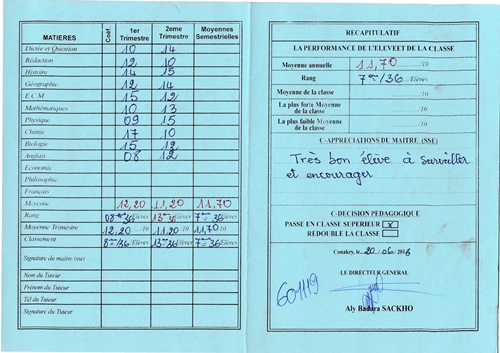 MATIERES Coéf. 1er Trimestre 2eme Trimestre Moyennes Semestrielles
Dictée et Question 10 14
Rédaction 12 10
Histoire 14 15
Géographie 12 14
E.C.M 15 12
Mathématiques 10 13
Physique 09 15
Chimie 17 10
Biologie 15 12
Anglais 08 12
Economie
Philosophie
Français
Moyenne 12,20 11,20 11,70
Rang /36 Elèves /36 Elèves /36 Elèves
Moyenne Trimestre 12,20 /10 11,20 /10 11,70 /10
Classement /36 Elèves /36 Elèves /36 Elèves
Signature du maitre (sse)
Nom du Tuteur
Prénom du Tuteur
Tél du Tuteur
Signature du Tuteur
RECAPITULATIF
LA PERFORMANCE DE L'ELEVE ET DE LA CLASSE
Moyenne annuelle 11,70 /10
Rang /36 Elèves
Moyenne de la classe /10
La plus forte Moyenne de la classe /10
La plus faible Moyenne de la classe /10
C-APPRECIATIONS DU MAITRE (SSE)
Très bon élève à surveiller
et encourager
C-DECISION PEDAGOGIQUE
PASSE EN CLASSE SUPERIEUR X
REDOUBLE LA CLASSE
Conakry, le 20-06/
LE DIRECTEUR GENERAL
601119
Aly Badara SACKHO